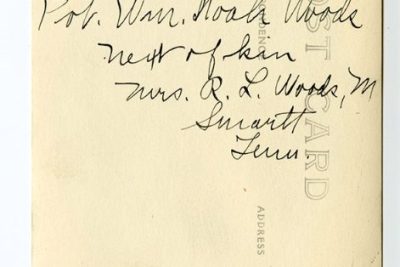 Pvt. Wm. Noah Woods
next of kin
Mrs. R. L. Woods, M
Smartt
Tenn.
POST CARD
ADDRESS